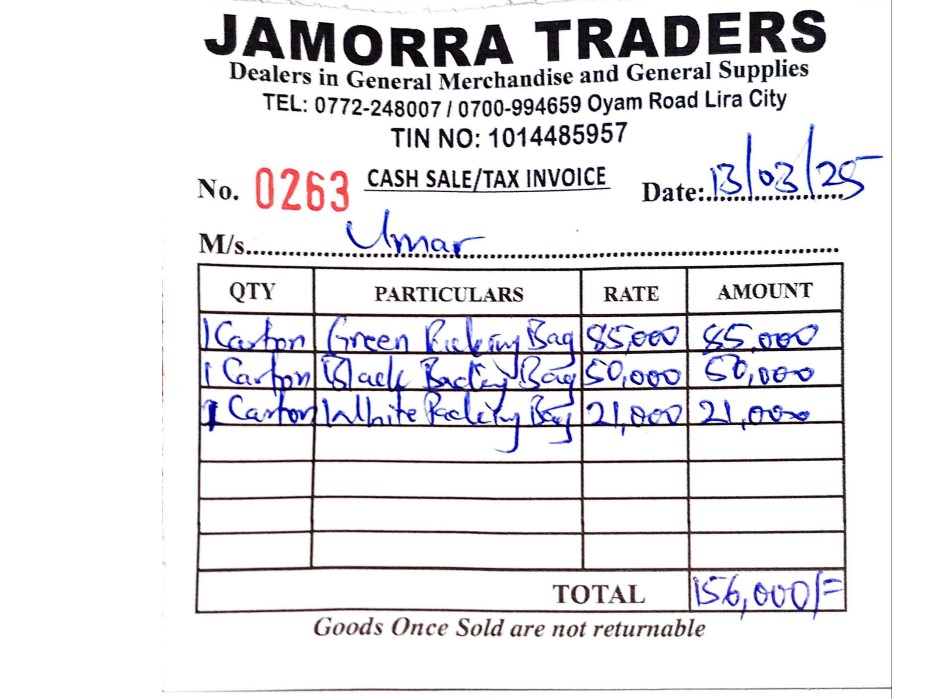 JAMORRA TRADERS
Dealers in General Merchandise and General Supplies
TEL: 0772-248007 / 0700-994659 Oyam Road Lira City
TIN NO: 1014485957
No. 0263 CASH SALE/TAX INVOICE Date: 13/03/25
M/s. Umar
QTY PARTICULARS RATE AMOUNT
1 Carton Green Bag 85,000 85,000
1 Carton Black Bag 50,000 50,000
1 Carton White Packing Bag 21,000 21,000
TOTAL 156,000/=
Goods Once Sold are not returnable